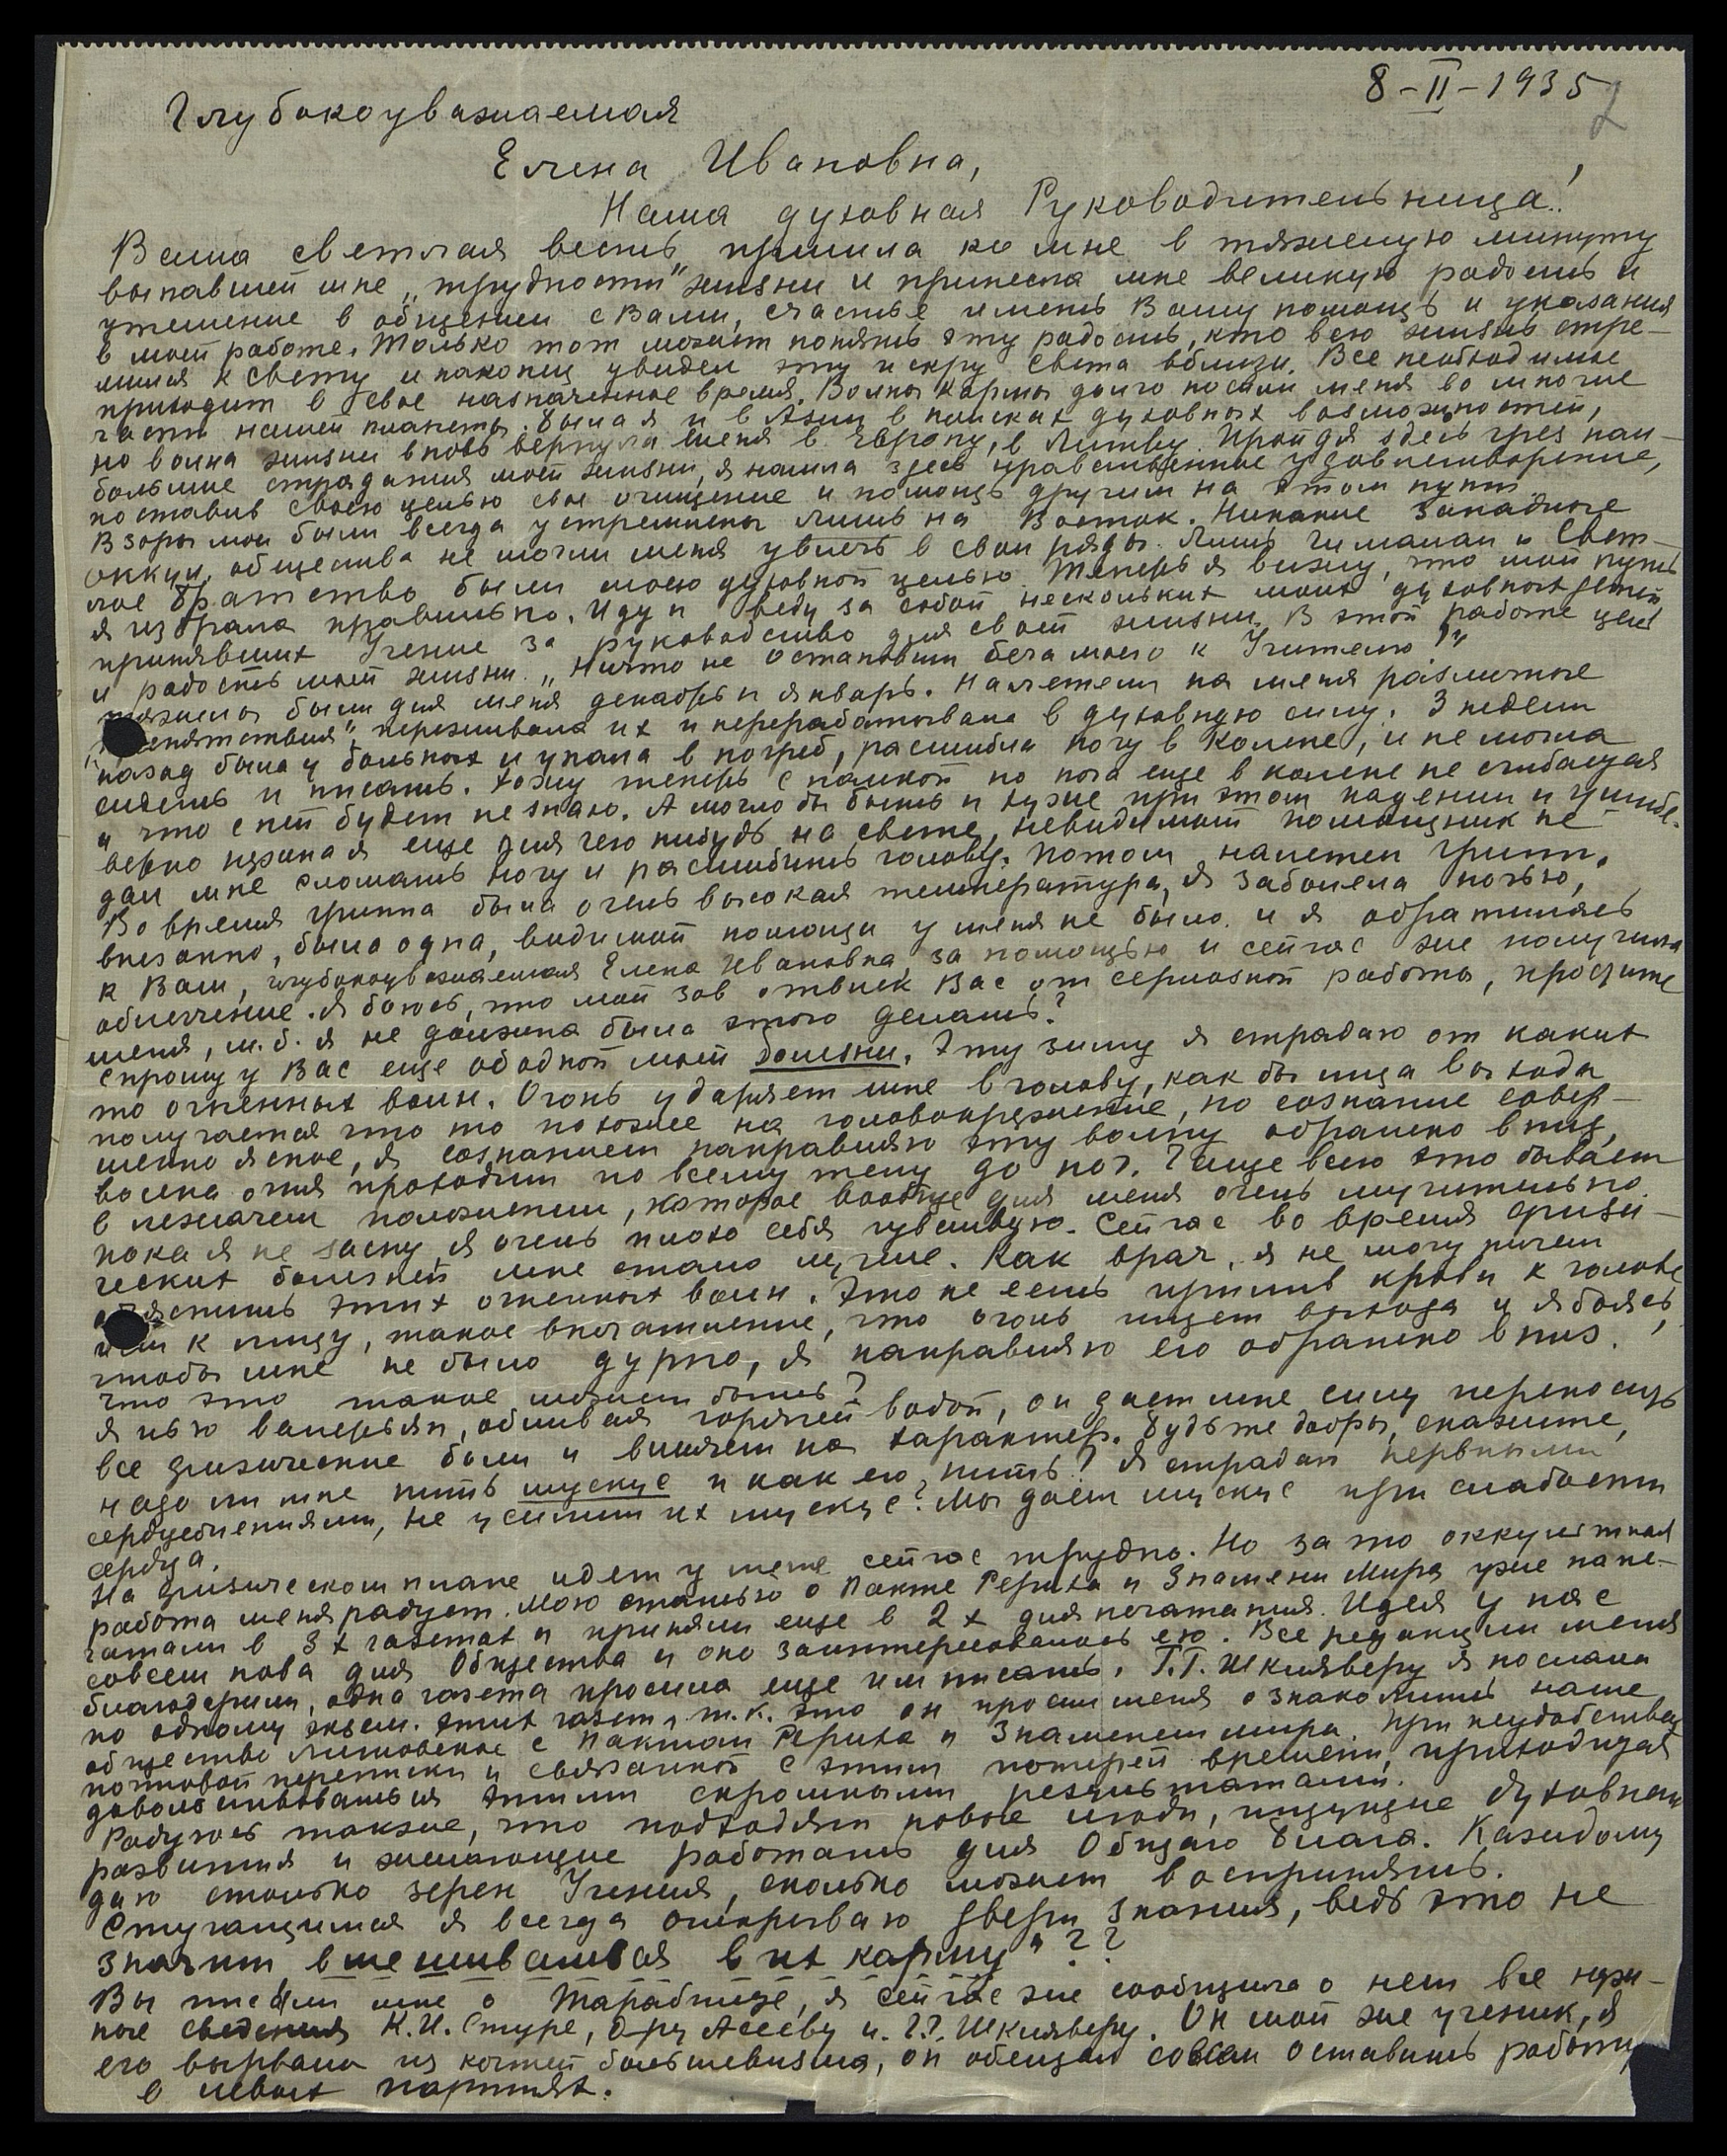 8-II-1935
2
Глубокоуважаемая
Елена Ивановна,
Наша духовная Руководительница!
Ваша светлая весть пришла ко мне в тяжелую минуту
выпавшей мне „трудности" жизни и принесла мне великую радость и
утешение в общении с Вами, счастье иметь Вашу помощь и указания
в моей работе. Только тот может понять эту радость, кто всю жизнь стре-
мился к свету и наконец увидел эту искру света вблизи. Все необходимое
приходит в свое назначенное время. Волны кармы долго носили меня во многие
части нашей планеты. Была я и в Азии в поисках духовных возможностей,
но волна жизни вновь вернула меня в Европу, в Литву. Пройдя здесь чрез наи-
большие страдания моей жизни, я нашла здесь нравственное удовлетворение,
поставив своею целью свое очищение и помощь другим на этом пути.
Взоры мои были всегда устремлены лишь на Восток. Никакие западные
оккул. общества не могли меня увлечь в свои ряды. Лишь Гималаи и Свет-
лое Братство были моею духовной целью. Теперь я вижу, что мой путь
я избрала правильно. Иду и веду за собой нескольких моих духовных детей,
принявших Учение за руководство для своей жизни. В этой работе цель
и радость моей жизни. „Ничто не остановит бега моего к Учителю!"
Тяжелы были для меня декабрь и январь. Налетели на меня различные
„препятствия", переживала их и перерабатывала в духовную силу. 3 недели
назад была у больных и упала в погреб, расшибла ногу в колене, и не могла
сидеть и писать. Хожу теперь с палкой но нога еще в колене не сгибается
и что с ней будет не знаю. А могло бы быть и хуже при этом падении и ушибе.
верно нужна я еще для чего нибудь на свете, невидимый помощник не
дал мне сломать ногу и расшибить голову. Потом налетел грипп.
Во время гриппа была очень высокая температура, я заболела ночью,
внезапно, была одна, видимой помощи у меня не было и я обратилась
к Вам, глубокоуважаемая Елена Ивановна за помощью и сейчас же получила
облегчение. Я боюсь, что мой зов отвлек Вас от серьозной работы, простите
меня, м.б. я не должна была этого делать?
Спрошу у Вас еще об одной моей болезни. Эту зиму я страдаю от каких
то огненных волн. Огонь ударяет мне в голову, как бы ища выхода
получается что то похожее на головокружение, но сознание совер-
шенно ясное, я сознанием направляю эту волну обратно вниз,
волна огня проходит по всему телу до ног. Чаще всего это бывает
в лежачем положении, которое вообще для меня очень мучительно.
пока я не засну, я очень плохо себя чувствую. Сейчас во время физи-
ческих болезней мне стало лучше. Как врач, я не могу ничем
объяснить этих огненных волн. Это не есть прилив крови к голове
или к лицу, такое впечатление, что огонь ищет выхода и я боясь,
чтобы мне не было дурно, я направляю его обратно вниз.
Что это такое может быть?
Я пью валерьян, обливая горячей водой, он дает мне силу переносить
все физические боли и влияет на характер. Будьте добры, скажите,
надо ли мне пить мускус и как его пить? Я страдаю нервными
сердцебиениями, не усилит их мускус? Мы даем мускус при слабости
сердца.
На физическом плане идет у меня сейчас трудно. Но за то оккультная
работа меня радует. Мою статью о Пакте Рериха и Знамени Мира уже напе-
чатали в 3х газетах и приняли еще в 2х для печатания. Идея у нас
совсем нова для Общества и оно заинтересовалось ею. Все редакции меня
благодарили, одна газета просила еще им писать. Г.Г. Шклявверу я послала
по одному экзем. этих газет, т.к. это он просил меня ознакомить наше
общество литовское с Пактом Рериха и Знаменем мира. При неудобствах
почтовой переписки и связанной с этим потерей времени, приходится
довольствоваться этими скромными результатами.
Радуюсь также, что подходят новые люди, ищущие духовнаго
развития и желающие работать для Общаго блага. Каждому
даю столько зерен Учения, сколько может воспринять.
Стучащимся я всегда открываю двери знания, ведь это не
значит вмешиваться в их карму"??
Вы писали мне о Тарабильде, я сейчас же сообщила о нем все нуж-
ные сведения К.И. Стуре, д-ру Асееву и Г.Г. Шклявверу. Он мой же ученик, я
его вырвала из когтей большевизма, он обещал совсем оставить работу
в левых партиях.